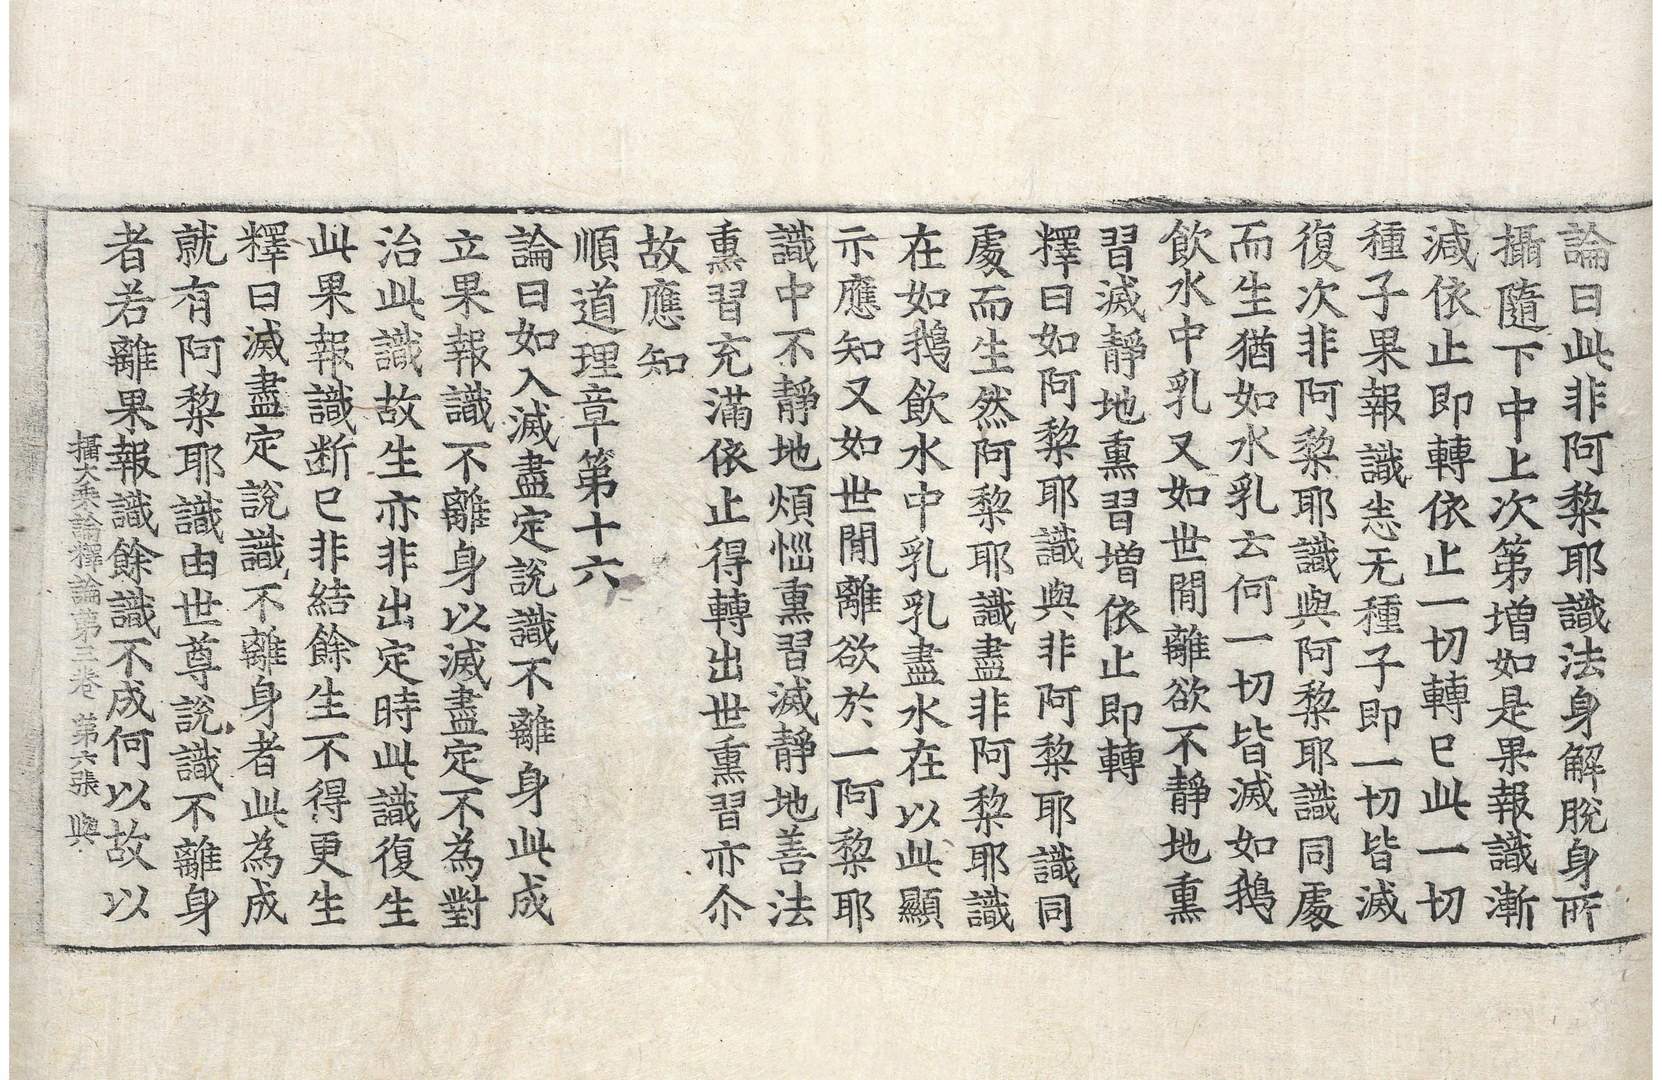 論曰此非阿黎耶識法身解脫身所
攝隨下中上次第增如是果報識漸
減依止即轉依止一切轉已此一切
種子果報識恙无種子即一切皆滅
復次非阿黎耶識與阿黎耶識同處
而生猶如水乳云何一切皆滅如鵝
飲水中乳又如世間離欲不靜地熏
習滅靜地熏習增依止即轉
釋曰如阿黎耶識與非阿黎耶識同
處而生然阿黎耶識盡非阿黎耶識
在如鵝飲水中乳乳盡水在以此顯
示應知又如世間離欲於一阿黎耶
識中不靜地煩惱熏習滅靜地善法
熏習充滿依止得轉出世熏習亦尒
故應知
順道理章第十六
論曰如入滅盡定說識不離身此成
立果報識不離身以滅盡定不為對
治此識故生亦非出定時此識復生
此果報識断已非結餘生不得更生
釋曰滅盡定說識不離身者此為成
就有阿黎耶識由世尊說識不離身
者若離果報識餘識不成何以故以
攝大乘論釋論第三卷 第六張 與